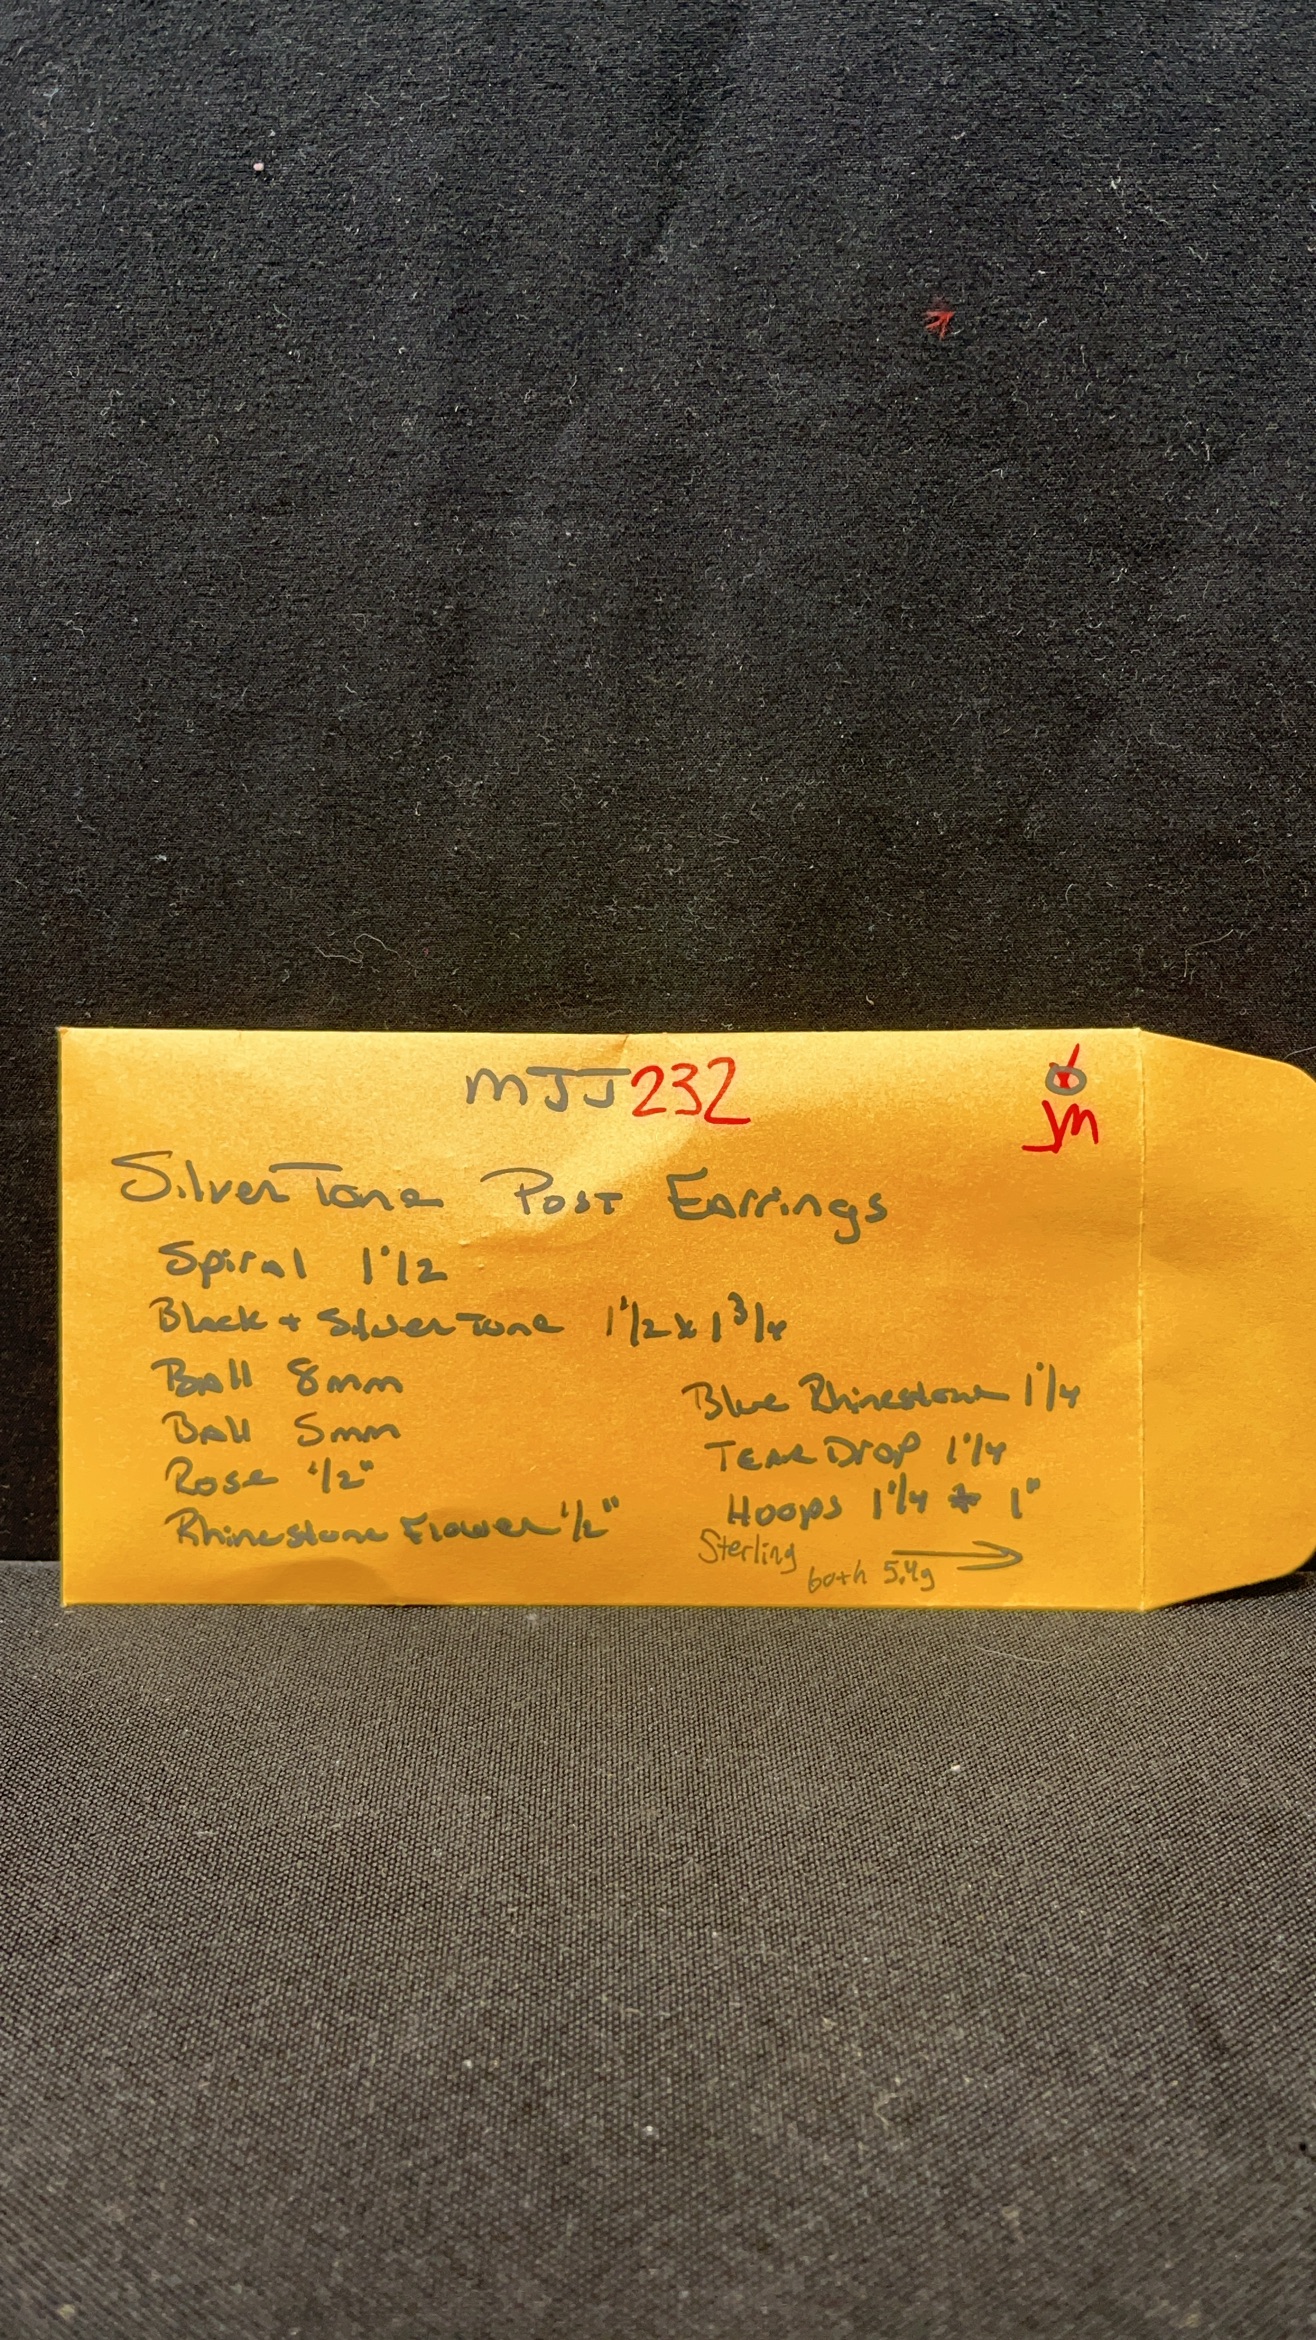 MJJ232
JM
Silver Tone Post Earrings
Spiral 1 1/2
Black + Silver Tone 1 1/2 x 1 3/4
Ball 8mm
Ball 5mm
Rose 1/2"
Rhinestone Flower 1/2"
Blue Rhinestone 1 1/4
Tear Drop 1 1/4
Hoops 1 1/4 + 1"
Sterling
both 5.4g